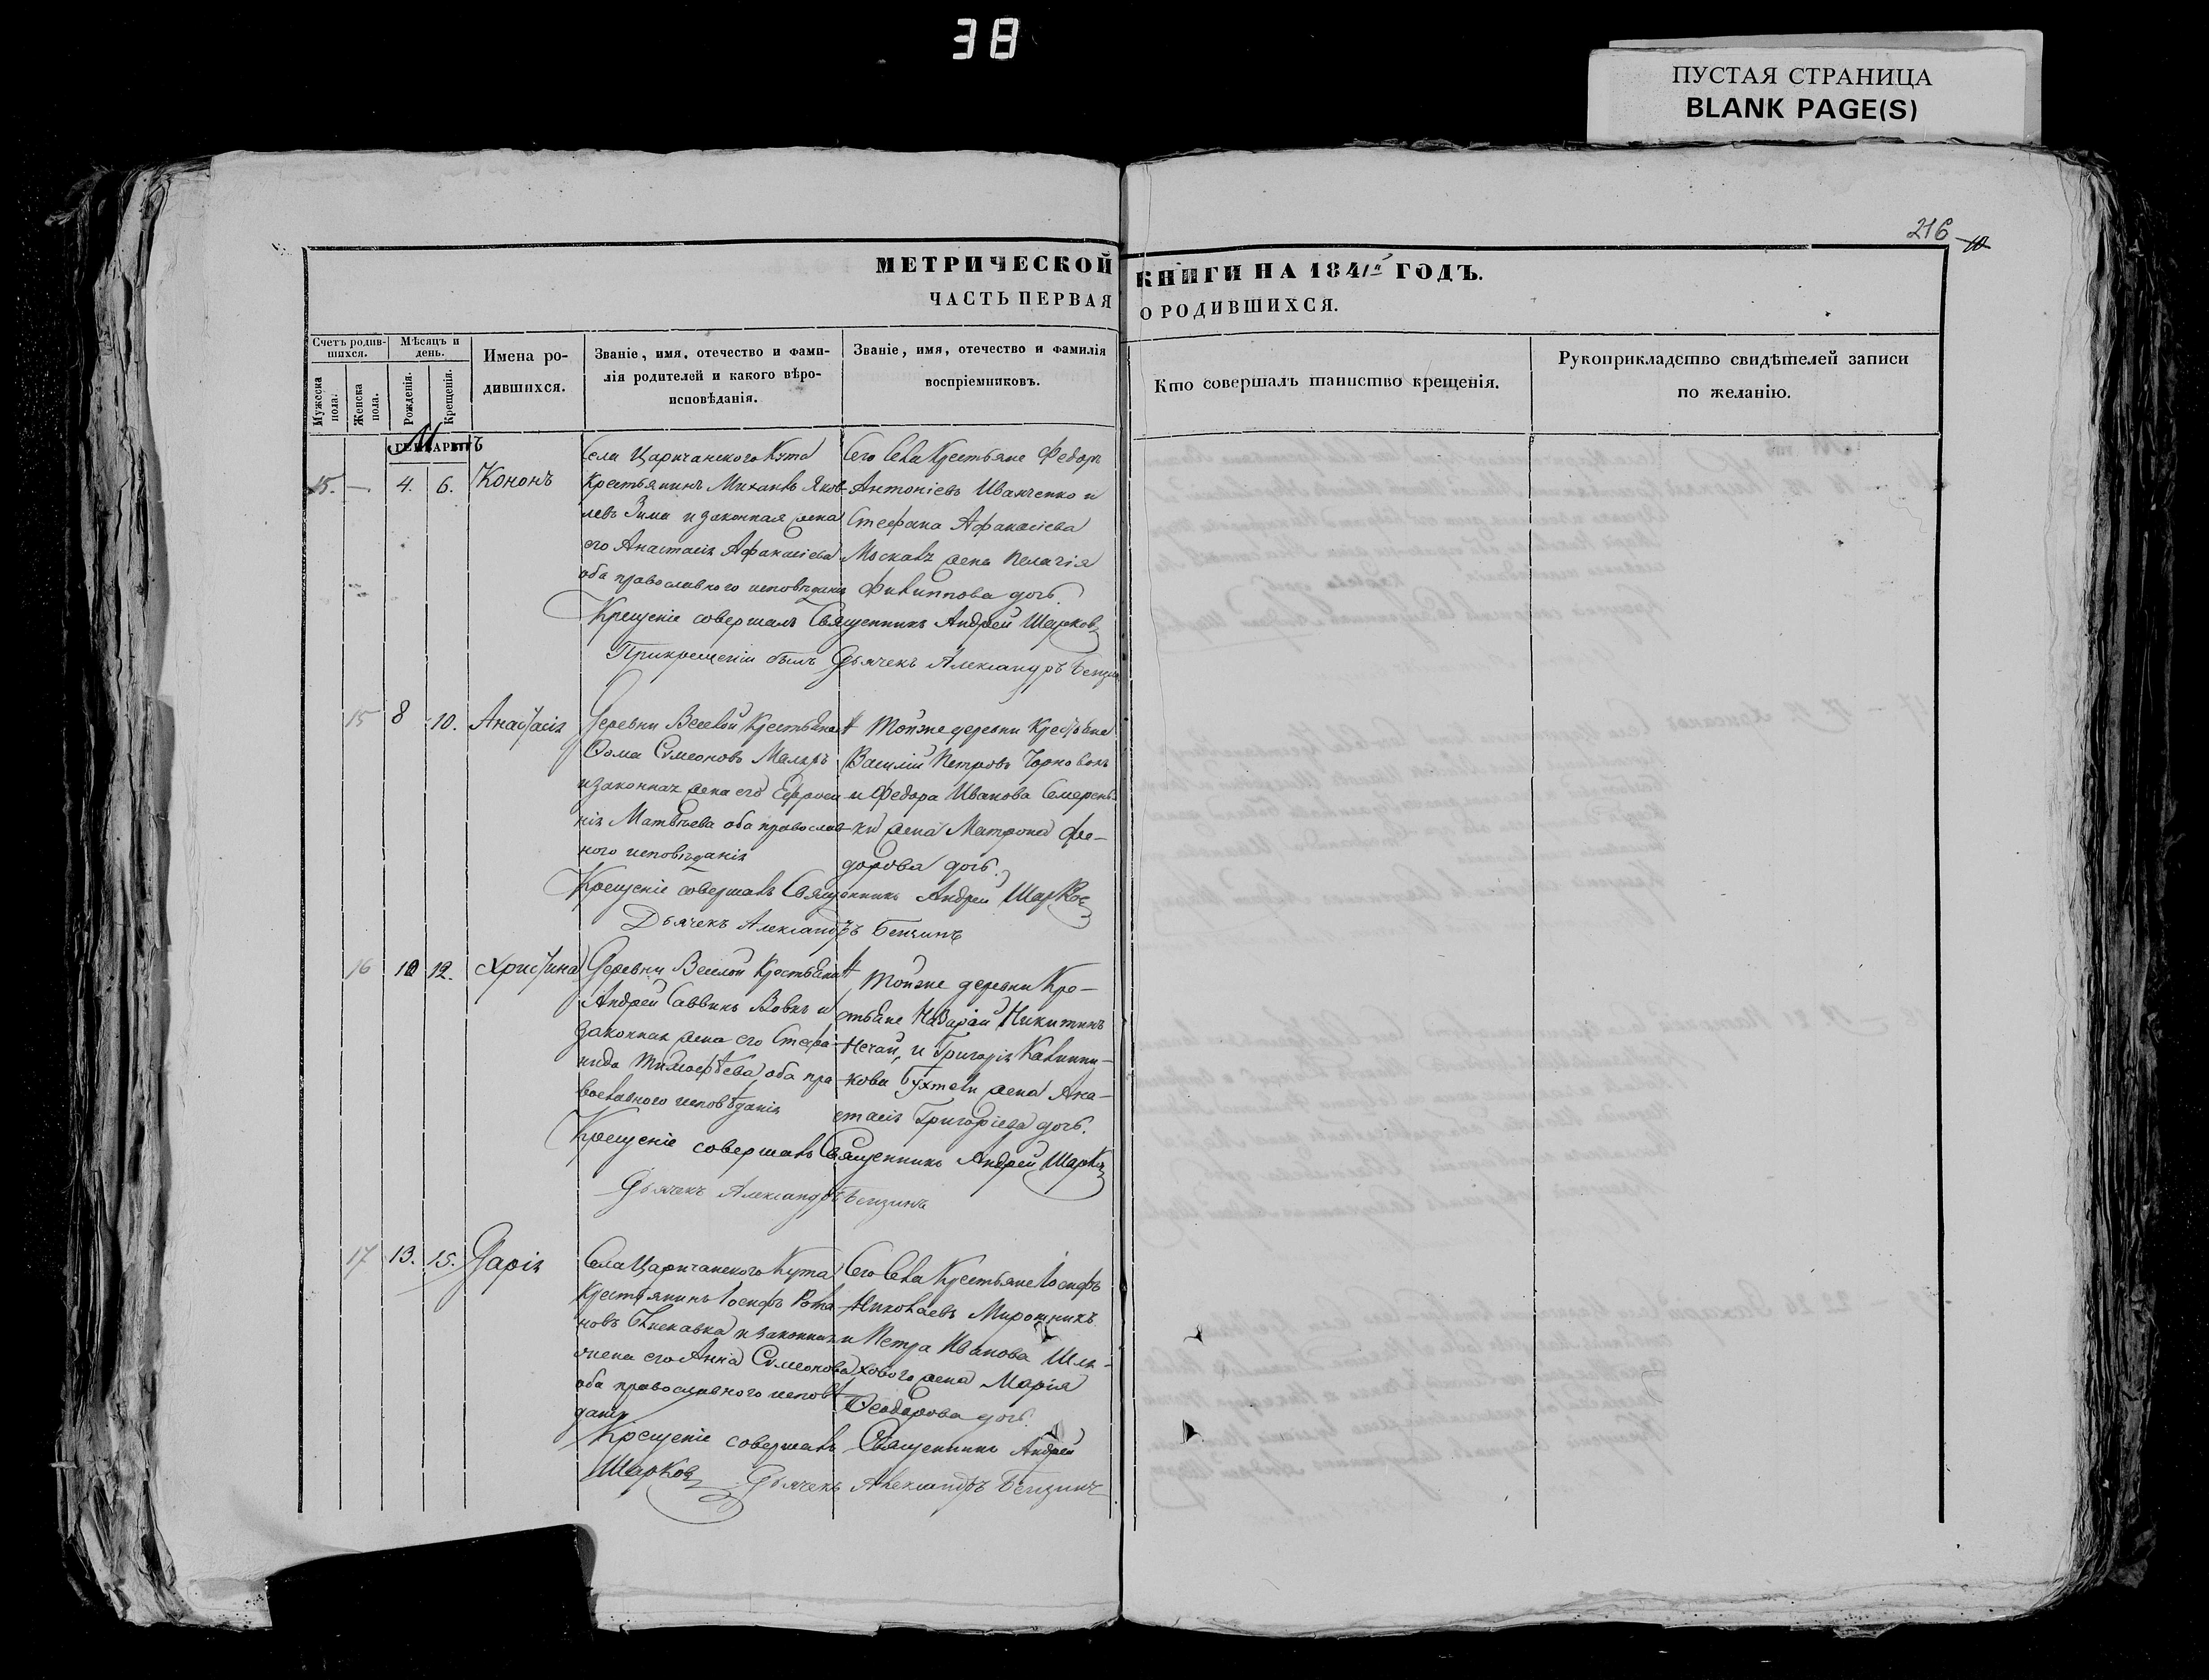 38
ПУСТАЯ СТРАНИЦА
BLANK PAGE(S)
216
МЕТРИЧЕСКОЙ КНИГИ НА 1841й ГОДЪ.
ЧАСТЬ ПЕРВАЯ О РОДИВШИХСЯ.
Счетъ родив-
шихся.
Мужеска
пола.
Женска
пола.
Мѣсяцъ и
день.
Рожденія.
Крещенія.
Имена ро-
дившихся.
Званіе, имя, отечество и фами-
лія родителей и какого вѣро-
исповѣданія.
Званіе, имя, отечество и фамилія
воспріемниковъ.
Кто совершалъ таинство крещенія.
Рукоприкладство свидѣтелей записи
по желанію.
15. — 4. 6. Кононъ
Села Царичанского Кута
Крестьянинъ Михаилъ Яков-
левъ Зима и законная жена
его Анастасія Афанасіева
оба православного исповѣданія
Сего Села Крестьяне Федоръ
Антоніевъ Иванченко и
Стефана Афанасіева
жена Пелагія
Филиппова дочь.
Крещеніе совершалъ Священникъ Андрей Шарковъ
При крещеніи былъ Дьячекъ Александръ
15 8 10. Анастасія
Деревни Веселой Крестьянинъ
Фома Симеоновъ Маляръ
и законная жена его Ефроси
нія Матвѣева оба православ-
ного исповѣданія
Тойже деревни Крестьяне
Василій Петровъ
и Федора Иванова Семерень-
ки жена Матрона Фе-
дорова дочь.
Крещеніе совершалъ Священникъ Андрей Шарковъ
Дьячекъ Александръ
16 10 12. Христина
Деревни Веселой Крестьянинъ
Андрей Саввинъ Вовкъ и
законная жена его Стефа-
нида Тимофѣева оба пра
вославного исповѣданія
Тойже деревни Кре-
стьяне Назарій Никитинъ
Нечай, и Григорія Калинни-
кова жена Ана-
стасія Григоріева дочь.
Крещеніе совершалъ Священникъ Андрей Шарковъ
Дьячекъ Александръ
17 13. 15. Дарія
Села Царичанского Кута
Крестьянинъ Іосифъ Рома
новъ и законная
жена его Анна Симеонова
оба православного исповѣ
данія
Сего Села Крестьяне Іосифъ
Николаевъ Мирошникъ
и Петра Иванова Шля-
хового жена Марія
Феодорова дочь.
Крещеніе совершалъ Священникъ Андрей
Шарковъ Дьячекъ Александръ